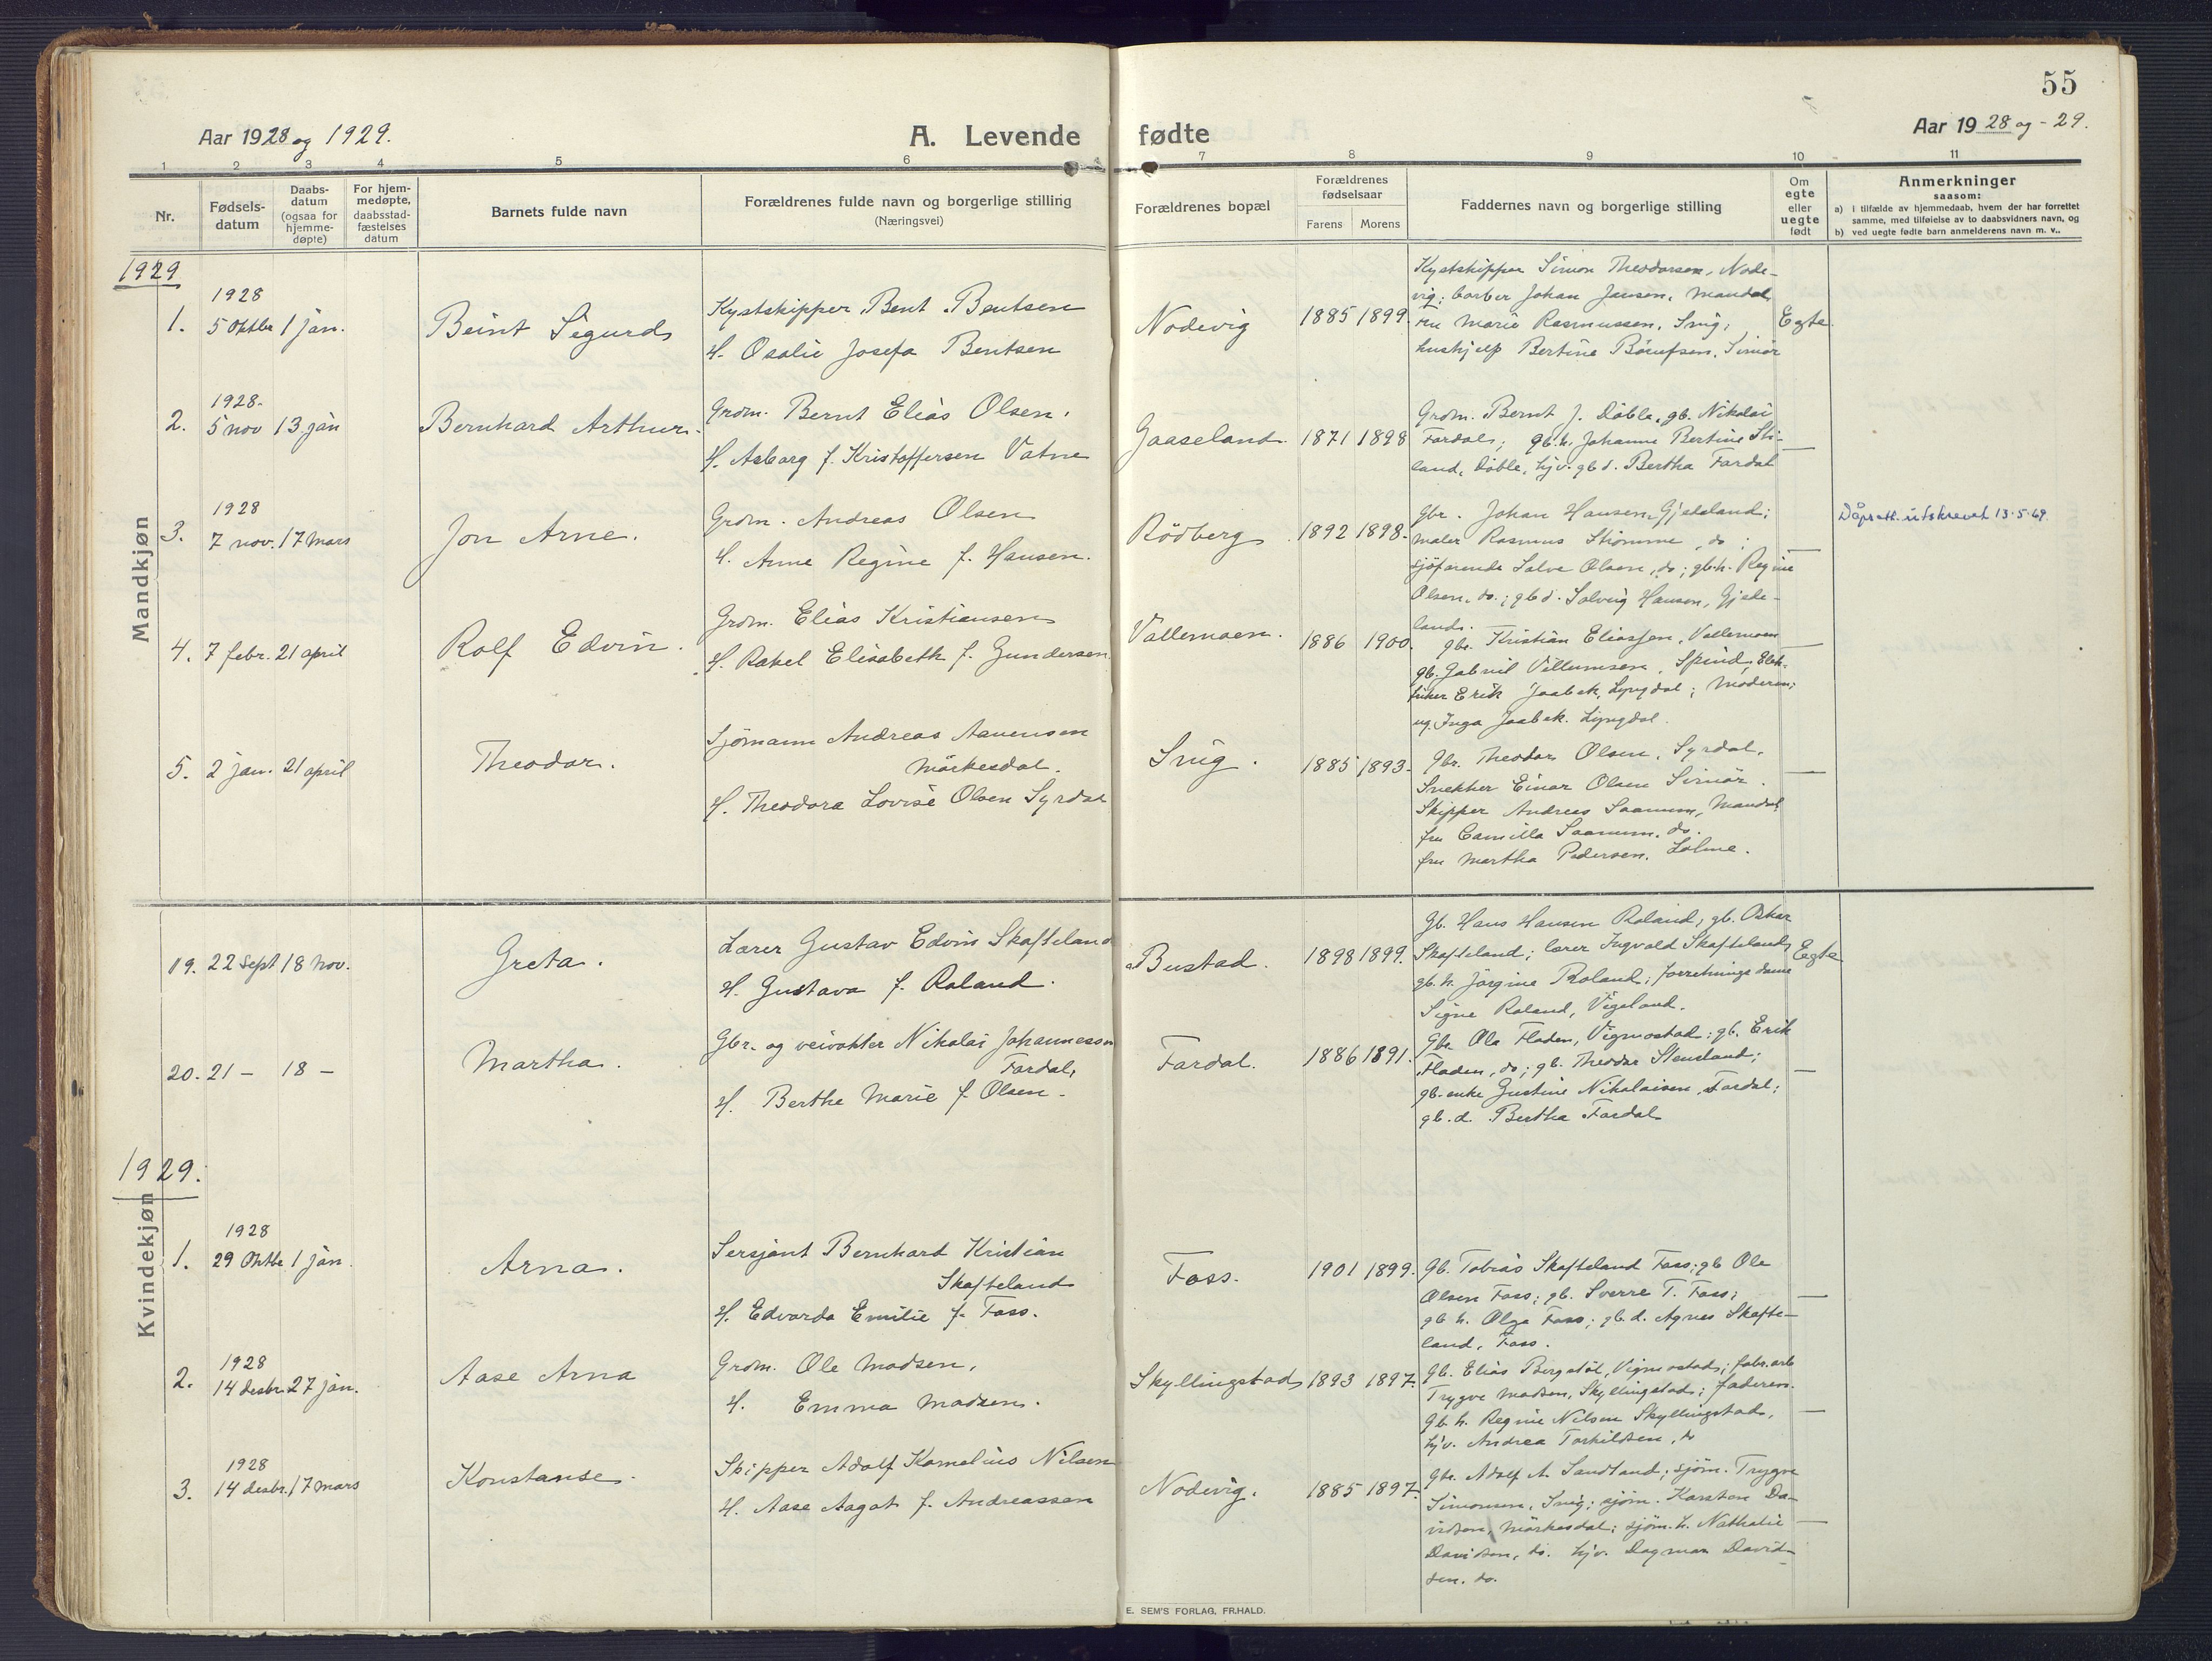 55
Aar 1928 og 1929.
A. Levende fødte
Aar 1928 og - 29.
1 2 3 4 5 6 7 8 9 10 11
Nr.
Fødsels-
datum
Daabs-
datum
(ogsaa for
hjemme-
døpte)
For hjem-
medøpte,
daabsstad-
fæstelses
datum
Barnets fulde navn
Forældrenes fulde navn og borgerlige stilling
(Næringsvei)
Forældrenes bopæl
Forældrenes
fødselsaar
Farens Morens
Faddernes navn og borgerlige stilling
Om
egte
eller
uegte
født
Anmerkninger
saasom:
a) i tilfælde av hjemmedaab, hvem der har forrettet
samme, med tilføielse av to daabsvidners navn, og
b) ved uegte fødte barn anmelderens navn m. v..
Mandkjøn
1929
1. 1928
5 oktbr 1 jan.
Beint Sigurd
Kystskipper Bent Bentsen
H. Osalie Josefa Bentsen
Nodevig
1885 1899.
Kystskipper Simon Theodorsen, Node-
vig; barber Johan Jansen, Mandal
Fru Marie Rasmussen, Snig;
hushjelp Bertine
Egte.
2. 1928.
5 nov 13 jan
Bernhard Arthur.
Grdm. Bernt Elias Olsen.
H. Asborg f. Kristoffersen Vatne
Gaaseland.
1871 1898
Grdm. Bernt J. Döble, gb. Nikolai
Fardal; gb.h. Johanne Bertine Sti-
land, Döble, hjv. gb d. Bertha Fardal
—
3. 1928
7 nov. 17 mars
Jon Arne.
Grdm. Andreas Olsen
H. Anne Regine f. Hansen.
Rödberg
1892 1898.
gbr. Johan Hansen, Gjedeland;
maler Rasmus Strömme, do;
sjöfarende Salve Olsen, do; gb.h. Regine
Olsen, do.; gb d. Solveig Hansen, Gjede-
land.
—
Dåpsatt. utskrevet 13.5.69.
4. 7 febr. 21 april
Rolf Edvin.
Grdm. Elias Kristiansen
H. Rakel Elisabeth f. Gundersen
Vallemoen.
1886 1900.
gbr. Kristian Eliassen, Vallemoen
gb. Gabriel Villumsen, Spind, Elek-
triker Erik Jaabek, Lyngdal; Moderen;
ug. Inga Jaabek. Lyngdal.
—
5. 2 jan. 21 april
Theodor.
Sjömann Andreas Aanensen
Mörkesdal.
H. Theodora Lovise Olsen Syrdal
Snig.
1885 1893.
Gbr. Theodor Olsen, Syrdal,
Snekker Einar Olsen
Skipper Andreas Saanum, Mandal
fru Camilla Saanum. do.
fru Martha Pedersen.
—
Kvindekjøn
19. 22 sept 18 nov.
Greta.
Lærer Gustav Edvin Skofteland
H. Gustava f. Roland.
Bustad.
1898 1899.
Gb. Hans Hansen Roland, gb. Oskar
Skofteland; lærer Ingvald Skofteland
gb.h. Jörgine Roland; forretningsdame
Signe Roland, Vigeland.
Egte
20. 21 - 18 -
Martha.
Gbr. og veivokter Nikolai Johannessen
Fardal,
H. Berthe Marie f. Olsen.
Fardal.
1886 1891.
Gbr. Ole Fladen, Vigmostad; gb. Erik
Fladen, do; gb. Theodor Stensland;
gb. enke Gustine Nikolaisen, Fardal;
gb. d. Bertha Fardal
—
1929.
1. 1928
29 Oktbr 1 jan.
Arna.
Sersjant Bernhard Kristian
Skofteland
H. Edvarda Emilie f. Foss.
Foss.
1901 1899.
Gb. Tobias Skofteland Foss; gb Ole
Olsen Foss; gb. Sverre T. Foss;
gb h. Olga Foss; gb. d. Agnes Skofte-
land, Foss.
—
2. 1928
14 desbr. 27 jan.
Aase Arna
Grdm. Ole Madsen,
H. Emma Madsen.
Skyllingstad
1893 1897.
Gb. Elias Bergstöl, Vigmostad; fabr. arb
Trygve Madsen, Skyllingstad; faderen.
Gb h. Regine Nilsen Skyllingstad,
hjv. Andrea Torkildsen, do
—
3. 1928
14 desbr. 17 mars
Konstanse.
Skipper Adolf Kornelius Nilsen
H. Aase Aagot f. Andreassen
Nodevig.
1885 1897.
Gbr. Adolf A. Sandland; sjöm. Trygve
Simonsen, Snig; sjöm. Karsten Da-
vidsen, Mörkesdal; sjöm. h. Nathalie
Davidsen, do. hjv. Dagmar David-
sen. do.
—
E. SEM'S FORLAG, FR.HALD.